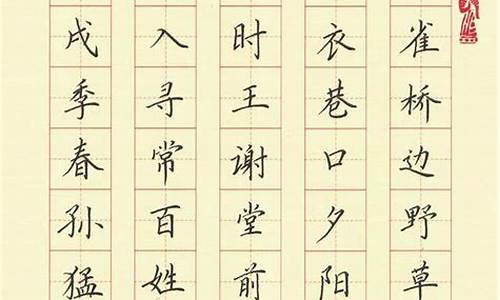 雀桥边野草
衣巷口夕阳
时王谢堂前
入寻常百姓
戌季春孙猛